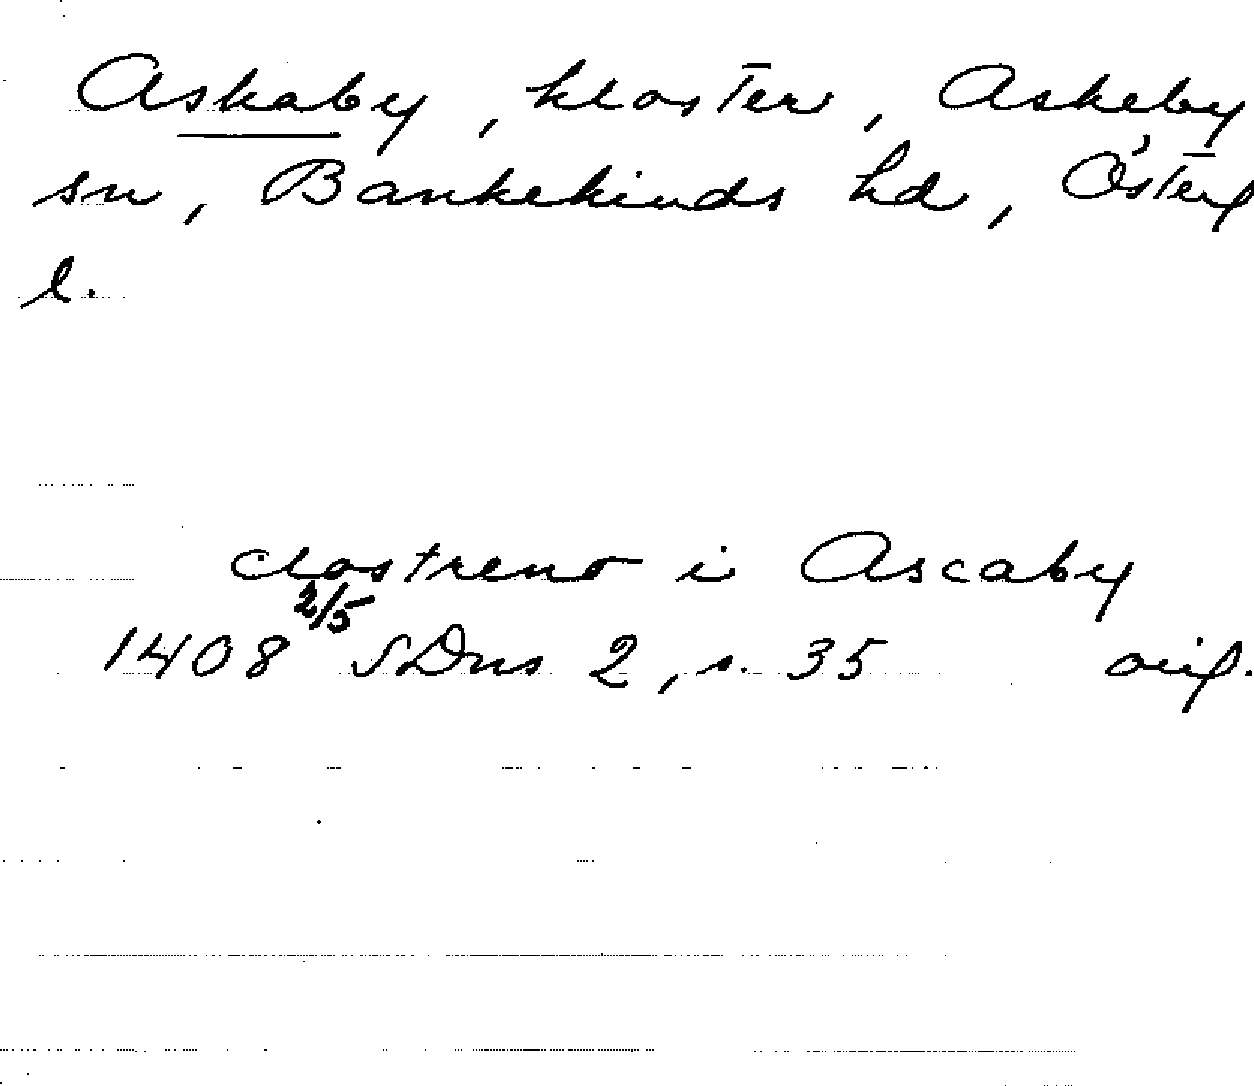 Askaby, kloster, Askeby
sn, Bankekinds hd, Österg
l.
clostreno i Ascaby
2/5
1408 SDns 2, s. 35 orig.